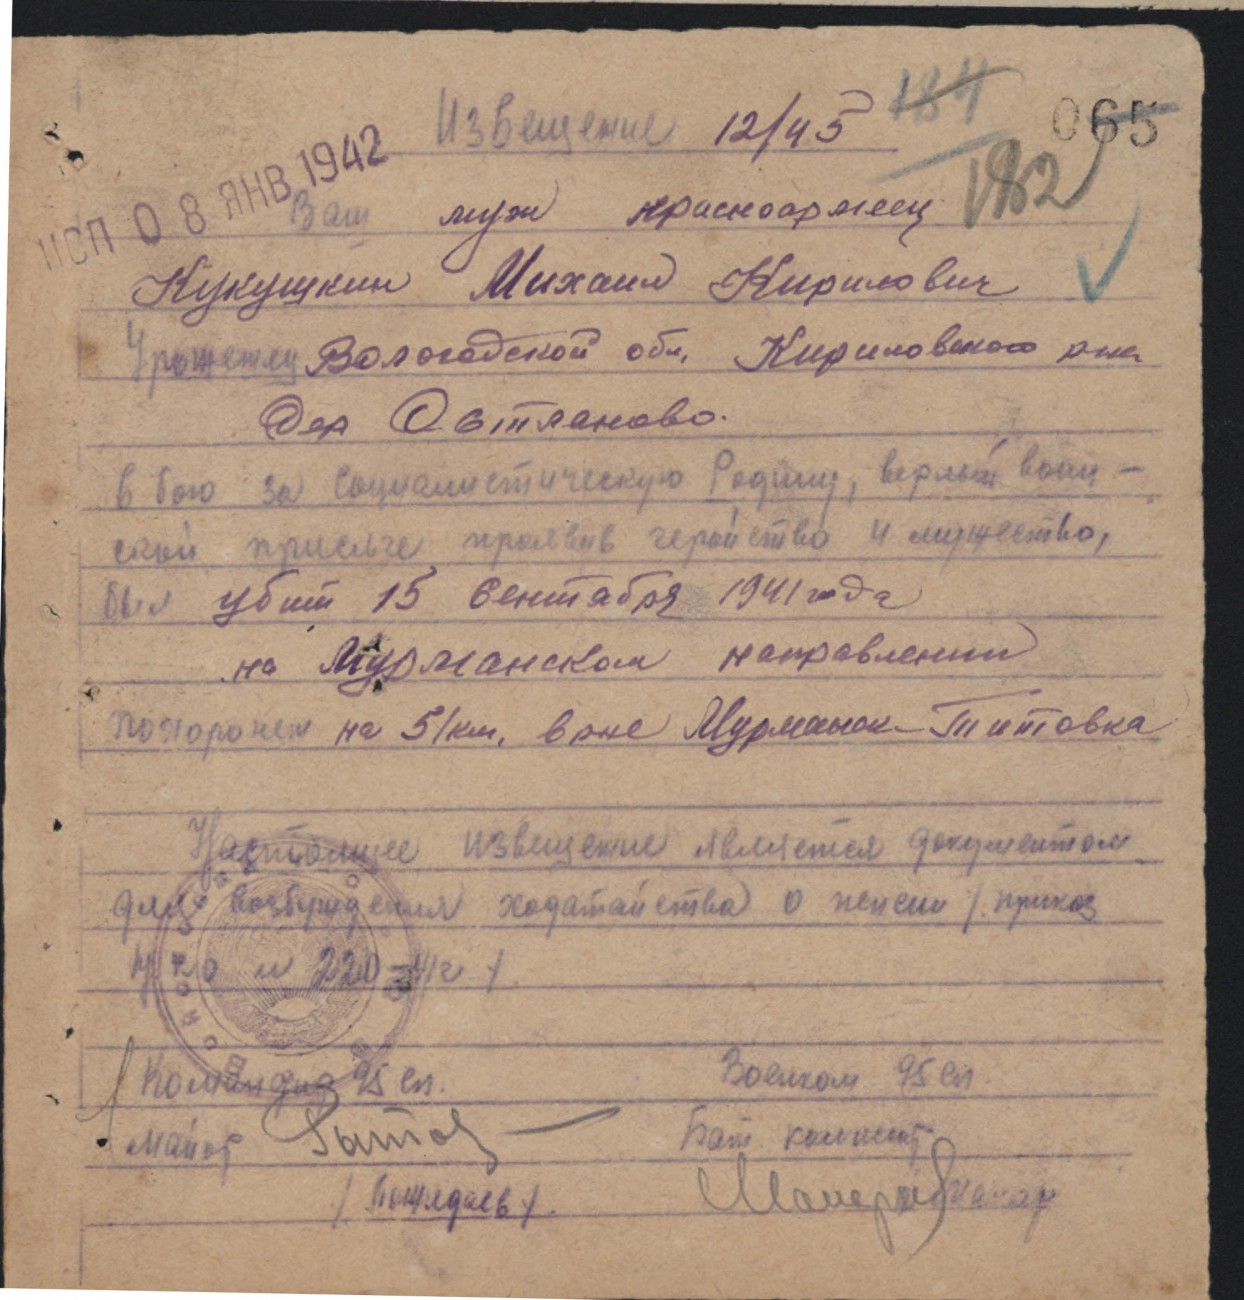 Извещение 12/45 184 065
ИСП 08 ЯНВ 1942 182
Ваш муж красноармеец
Кукушкин Михаил Кирилович
Уроженец Вологодской обл. Кириловского р-на
дер
в бою за социалистическую Родину, верный воин-
ской присяге проявив геройство и мужество,
был убит 15 сентября 1941 года
на Мурманском направлении
похоронен на 51 км, в р-не Мурманск-Титовка
Настоящее извещение является документом
для возбуждения ходатайства о пенсии /приказ
НКО № 220-41г/
Командир 95 сп. Военком 95 сп.
майор Бат. комиссар